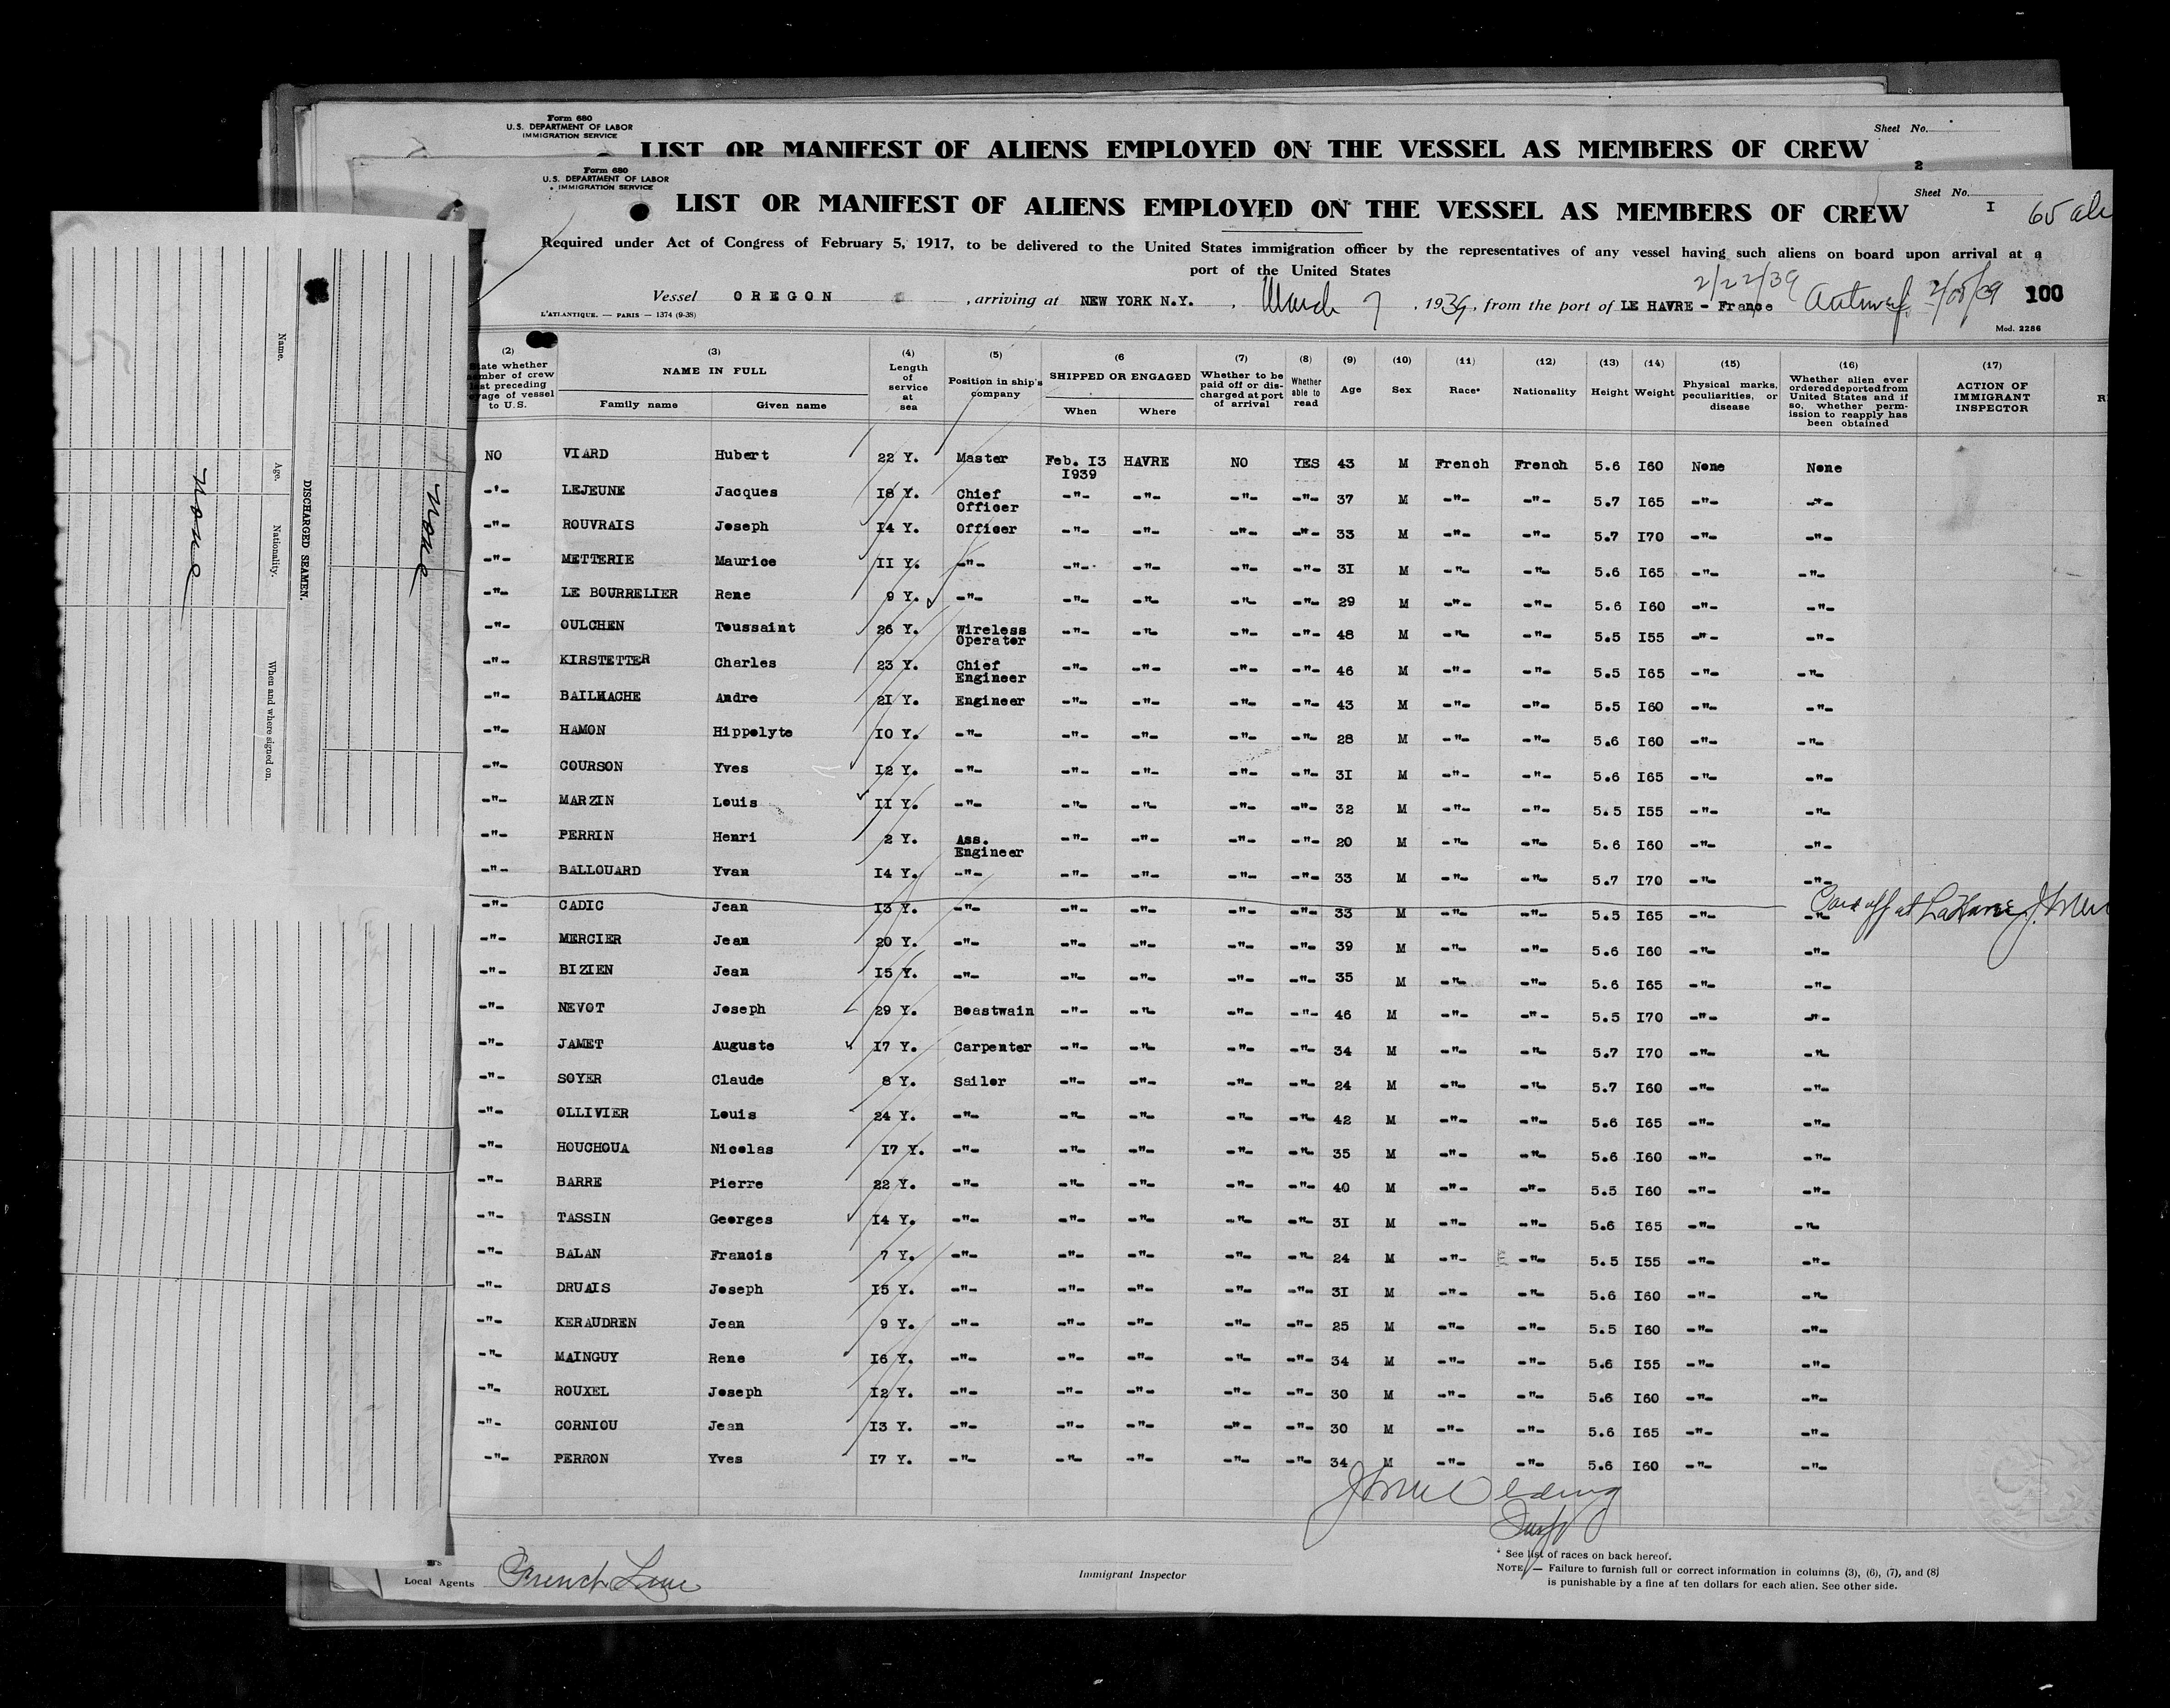 Form 680
U.S. DEPARTMENT OF LABOR
IMMIGRATION SERVICE
Sheet No.
LIST OR MANIFEST OF ALIENS EMPLOYED ON THE VESSEL AS MEMBERS OF CREW
2
Form 680
U.S. DEPARTMENT OF LABOR
IMMIGRATION SERVICE
Sheet No. I
65
LIST OR MANIFEST OF ALIENS EMPLOYED ON THE VESSEL AS MEMBERS OF CREW
Required under Act of Congress of February 5, 1917, to be delivered to the United States immigration officer by the representatives of any vessel having such aliens on board upon arrival at a
port of the United States
2/22/39
Vessel OREGON , arriving at NEW YORK N.Y. , March 7 , 1939, from the port of LE HAVRE - France 100
L'ATLANTIQUE. — PARIS — 1374 (9-38)
Mod. 2286
(2) (3) (4) (5) (6 (7) (8) (9) (10) (11) (12) (13) (14) (15) (16) (17)
NAME IN FULL
Family name Given name
Length of service at sea
Position in ship's company
SHIPPED OR ENGAGED
When Where
Whether to be paid off or discharged at port of arrival
Whether able to read
Age Sex Race* Nationality Height Weight
Physical marks, peculiarities, or disease
Whether alien ever ordered deported from United States and if so, whether permission to reapply has been obtained
ACTION OF IMMIGRANT INSPECTOR
NO VIARD Hubert 22 Y. Master Feb. I3 I939 HAVRE NO YES 43 M French French 5.6 I60 None None
-"- LEJEUNE Jacques I8 Y. Chief Officer -"- -"- -"- -"- 37 M -"- -"- 5.7 I65 -"- -"-
-"- ROUVRAIS Joseph I4 Y. Officer -"- -"- -"- -"- 33 M -"- -"- 5.7 I70 -"- -"-
-"- METTERIE Maurice II Y. -"- -"- -"- -"- -"- 3I M -"- -"- 5.6 I65 -"- -"-
-"- LE BOURRELIER Rene 9 Y. -"- -"- -"- -"- -"- 29 M -"- -"- 5.6 I60 -"- -"-
-"- OULCHEN Toussaint 26 Y. Wireless Operator -"- -"- -"- -"- 48 M -"- -"- 5.5 I55 -"- -"-
-"- KIRSTETTER Charles 23 Y. Chief Engineer -"- -"- -"- -"- 46 M -"- -"- 5.5 I65 -"- -"-
-"- BAILHACHE Andre 2I Y. Engineer -"- -"- -"- -"- 43 M -"- -"- 5.5 I60 -"- -"-
-"- HAMON Hippolyte I0 Y. -"- -"- -"- -"- -"- 28 M -"- -"- 5.6 I60 -"- -"-
-"- COURSON Yves I2 Y. -"- -"- -"- -"- -"- 3I M -"- -"- 5.6 I65 -"- -"-
-"- MARZIN Louis II Y. -"- -"- -"- -"- -"- 32 M -"- -"- 5.5 I55 -"- -"-
-"- PERRIN Henri 2 Y. Ass. Engineer -"- -"- -"- -"- 20 M -"- -"- 5.6 I60 -"- -"-
-"- BALLOUARD Yvan I4 Y. -"- -"- -"- -"- -"- 33 M -"- -"- 5.7 I70 -"- -"-
-"- CADIC Jean I3 Y. -"- -"- -"- -"- -"- 33 M -"- -"- 5.5 I65 -"- -"- off at
-"- MERCIER Jean 20 Y. -"- -"- -"- -"- -"- 39 M -"- -"- 5.6 I60 -"- -"-
-"- BIZIEN Jean I5 Y. -"- -"- -"- -"- -"- 35 M -"- -"- 5.6 I65 -"- -"-
-"- NEVOT Joseph 29 Y. Boastwain -"- -"- -"- -"- 46 M -"- -"- 5.5 I70 -"- -"-
-"- JAMET Auguste I7 Y. Carpenter -"- -"- -"- -"- 34 M -"- -"- 5.7 I70 -"- -"-
-"- SOYER Claude 8 Y. Sailor -"- -"- -"- -"- 24 M -"- -"- 5.7 I60 -"- -"-
-"- OLLIVIER Louis 24 Y. -"- -"- -"- -"- -"- 42 M -"- -"- 5.6 I65 -"- -"-
-"- HOUCHOUA Nicolas I7 Y. -"- -"- -"- -"- -"- 35 M -"- -"- 5.6 I60 -"- -"-
-"- BARRE Pierre 22 Y. -"- -"- -"- -"- -"- 40 M -"- -"- 5.5 I60 -"- -"-
-"- TASSIN Georges I4 Y. -"- -"- -"- -"- -"- 3I M -"- -"- 5.6 I65 -"- -"-
-"- BALAN Francis 7 Y. -"- -"- -"- -"- -"- 24 M -"- -"- 5.5 I55 -"- -"-
-"- DRUAIS Joseph I5 Y. -"- -"- -"- -"- -"- 3I M -"- -"- 5.6 I60 -"- -"-
-"- KERAUDREN Jean 9 Y. -"- -"- -"- -"- -"- 25 M -"- -"- 5.5 I60 -"- -"-
-"- MAINGUY Rene I6 Y. -"- -"- -"- -"- -"- 34 M -"- -"- 5.6 I55 -"- -"-
-"- ROUXEL Joseph I2 Y. -"- -"- -"- -"- -"- 30 M -"- -"- 5.6 I60 -"- -"-
-"- CORNIOU Jean I3 Y. -"- -"- -"- -"- -"- 30 M -"- -"- 5.6 I65 -"- -"-
-"- PERRON Yves I7 Y. -"- -"- -"- -"- -"- 34 M -"- -"- 5.6 I60 -"- -"-
Local Agents French Line
Immigrant Inspector
* See list of races on back hereof.
NOTE — Failure to furnish full or correct information in columns (3), (6), (7), and (8)
is punishable by a fine af ten dollars for each alien. See other side.
None
DISCHARGED SEAMEN.
Name. Age. Nationality. When and where signed on.
None